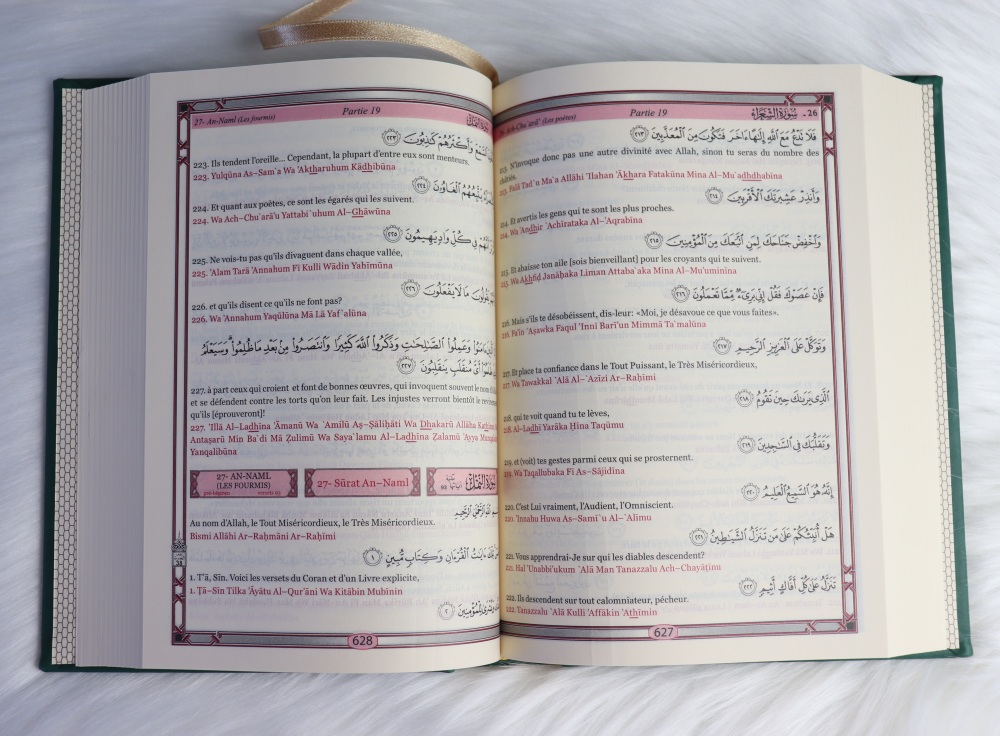 (Les poètes) Partie 19 26 - سُورَةُ الشُّعَرَاءِ
فَلَا تَدْعُ مَعَ ٱللَّهِ إِلَٰهًا ءَاخَرَ فَتَكُونَ مِنَ ٱلْمُعَذَّبِينَ ٢١٣
213. N'invoque donc pas une autre divinité avec Allah, sinon tu seras du nombre des
châtiés.
213. Falā Tad`u Ma`a Allāhi 'Ilahan 'Ākhara Fatakūna Mina Al–Mu`adhdhabīna
وَأَنذِرْ عَشِيرَتَكَ ٱلْأَقْرَبِينَ ٢١٤
214. Et avertis les gens qui te sont les plus proches.
214. Wa 'Andhir `Achīrataka Al–'Aqrabīna
وَٱخْفِضْ جَنَاحَكَ لِمَنِ ٱتَّبَعَكَ مِنَ ٱلْمُؤْمِنِينَ ٢١٥
215. Et abaisse ton aile [sois bienveillant] pour les croyants qui te suivent.
215. Wa Akhfiḍ Janāḥaka Liman Attaba`aka Mina Al–Mu'uminīna
فَإِنْ عَصَوْكَ فَقُلْ إِنِّى بَرِىٓءٌ مِّمَّا تَعْمَلُونَ ٢١٦
216. Mais s'ils te désobéissent, dis-leur: «Moi, je désavoue ce que vous faites».
216. Fa'in `Aşawka Faqul 'Innī Barī'un Mimmā Ta`malūna
وَتَوَكَّلْ عَلَى ٱلْعَزِيزِ ٱلرَّحِيمِ ٢١٧
217. Et place ta confiance dans le Tout Puissant, le Très Miséricordieux,
217. Wa Tawakkal `Alá Al–`Azīzi Ar–Raḥīmi
ٱلَّذِى يَرَىٰكَ حِينَ تَقُومُ ٢١٨
218. qui te voit quand tu te lèves,
218. Al–Ladhī Yarāka Ḥīna Taqūmu
وَتَقَلُّبَكَ فِى ٱلسَّٰجِدِينَ ٢١٩
219. et (voit) tes gestes parmi ceux qui se prosternent.
219. Wa Taqallubaka Fī As–Sājidīna
إِنَّهُۥ هُوَ ٱلسَّمِيعُ ٱلْعَلِيمُ ٢٢٠
220. C'est Lui vraiment, l'Audient, l'Omniscient.
220. 'Innahu Huwa As–Samī`u Al–`Alīmu
هَلْ أُنَبِّئُكُمْ عَلَىٰ مَن تَنَزَّلُ ٱلشَّيَٰطِينُ ٢٢١
221. Vous apprendrai-Je sur qui les diables descendent?
221. Hal 'Unabbi'ukum `Alá Man Tanazzalu Ach–Chayāţīnu
تَنَزَّلُ عَلَىٰ كُلِّ أَفَّاكٍ أَثِيمٍ ٢٢٢
222. Ils descendent sur tout calomniateur, pécheur.
222. Tanazzalu `Alá Kulli 'Affākin 'Athīmin
627
27- An-Naml (Les fourmis) Partie 19
ٱلسَّمْعَ وَأَكْثَرُهُمْ كَٰذِبُونَ ٢٢٣
223. Ils tendent l'oreille... Cependant, la plupart d'entre eux sont menteurs.
223. Yulqūna As–Sam`a Wa 'Aktharuhum Kādhibūna
يَتَّبِعُهُمُ ٱلْغَاوُۥنَ ٢٢٤
224. Et quant aux poètes, ce sont les égarés qui les suivent.
224. Wa Ach–Chu`arā'u Yattabi`uhum Al–Ghāwūna
أَنَّهُمْ فِى كُلِّ وَادٍ يَهِيمُونَ ٢٢٥
225. Ne vois-tu pas qu'ils divaguent dans chaque vallée,
225. 'Alam Tará 'Annahum Fī Kulli Wādin Yahīmūna
يَقُولُونَ مَا لَا يَفْعَلُونَ ٢٢٦
226. et qu'ils disent ce qu'ils ne font pas?
226. Wa 'Annahum Yaqūlūna Mā Lā Yaf`alūna
ءَامَنُوا۟ وَعَمِلُوا۟ ٱلصَّٰلِحَٰتِ وَذَكَرُوا۟ ٱللَّهَ كَثِيرًا وَٱنتَصَرُوا۟ مِنۢ بَعْدِ مَا ظُلِمُوا۟ وَسَيَعْلَمُ
ظَلَمُوٓا۟ أَىَّ مُنقَلَبٍ يَنقَلِبُونَ ٢٢٧
227. à part ceux qui croient et font de bonnes œuvres, qui invoquent souvent le nom
et se défendent contre les torts qu'on leur fait. Les injustes verront bientôt le
qu'ils [éprouveront]!
227. 'Illā Al–Ladhīna 'Āmanū Wa `Amilū Aş–Şāliḥāti Wa Dhakarū Allāha Kathīran
Antaşarū Min Ba`di Mā Žulimū Wa Saya`lamu Al–Ladhīna Žalamū 'Ayya
Yanqalibūna
27- AN-NAML
(LES FOURMIS)
pré-hégirien versets 93
27- Sūrat An–Naml
سُورَةُ النَّمْلِ
ٱللَّهِ ٱلرَّحْمَٰنِ ٱلرَّحِيمِ
Au nom d'Allah, le Tout Miséricordieux, le Très Miséricordieux.
Bismi Allāhi Ar–Raḥmāni Ar–Raḥīmi
ءَايَٰتُ ٱلْقُرْءَانِ وَكِتَابٍ مُّبِينٍ ١
1. T'â, Sîn. Voici les versets du Coran et d'un Livre explicite,
1. Ţā–Sīn Tilka 'Āyātu Al–Qur'āni Wa Kitābin Mubīnin
وَبُشْرَىٰ لِلْمُؤْمِنِينَ ٢
628